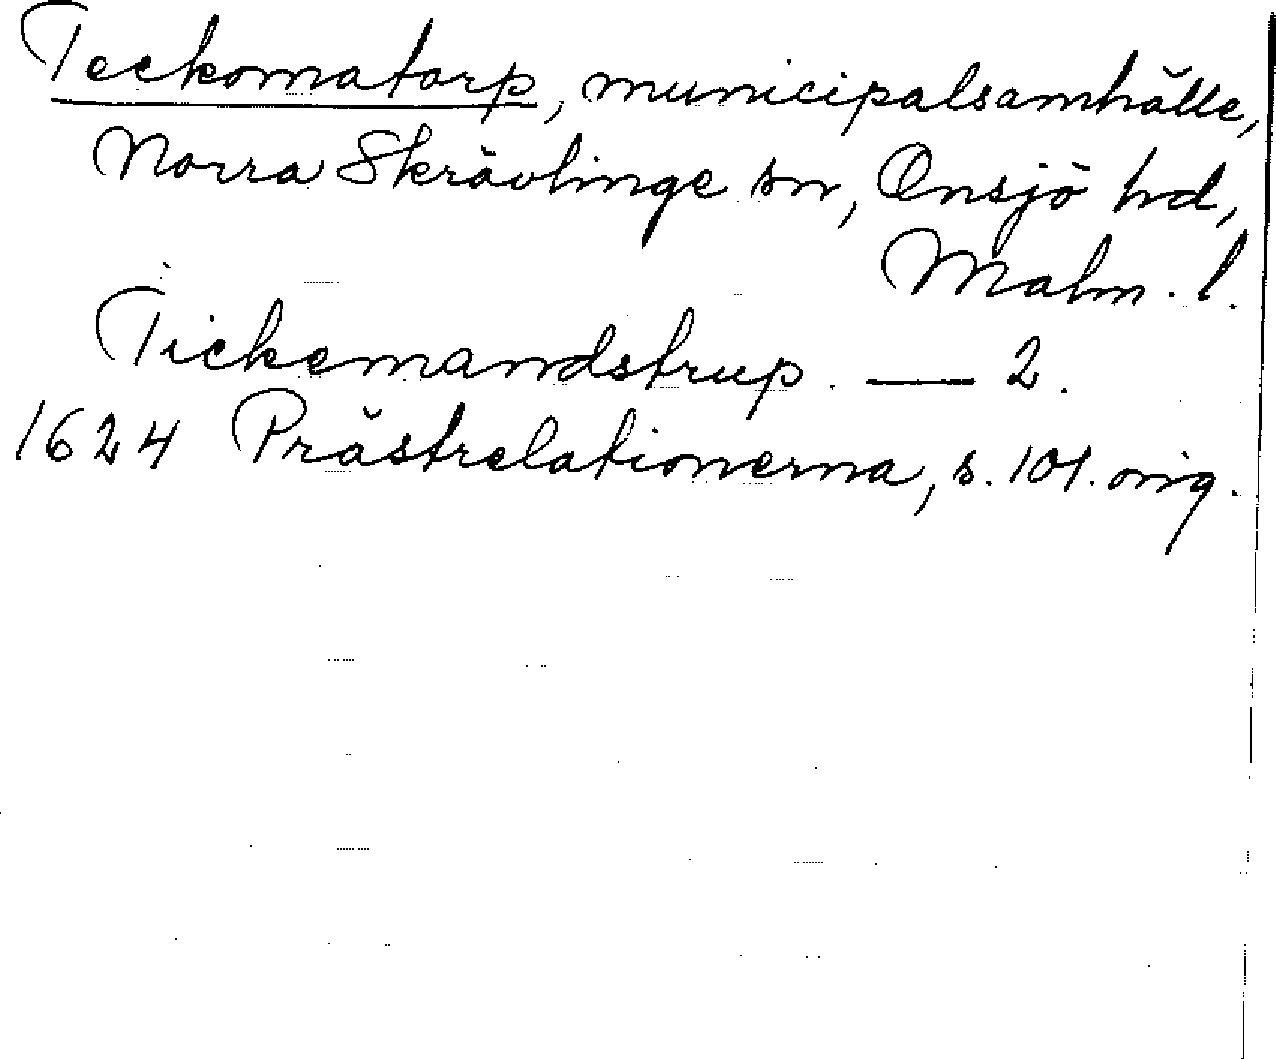 Teckomatorp, municipalsamhälle,
Norra Skrävlinge sn, Onsjö hd,
Malm. l.
Tickemandstrup. — 2.
1624 Prästrelationerna, s. 101. orig.